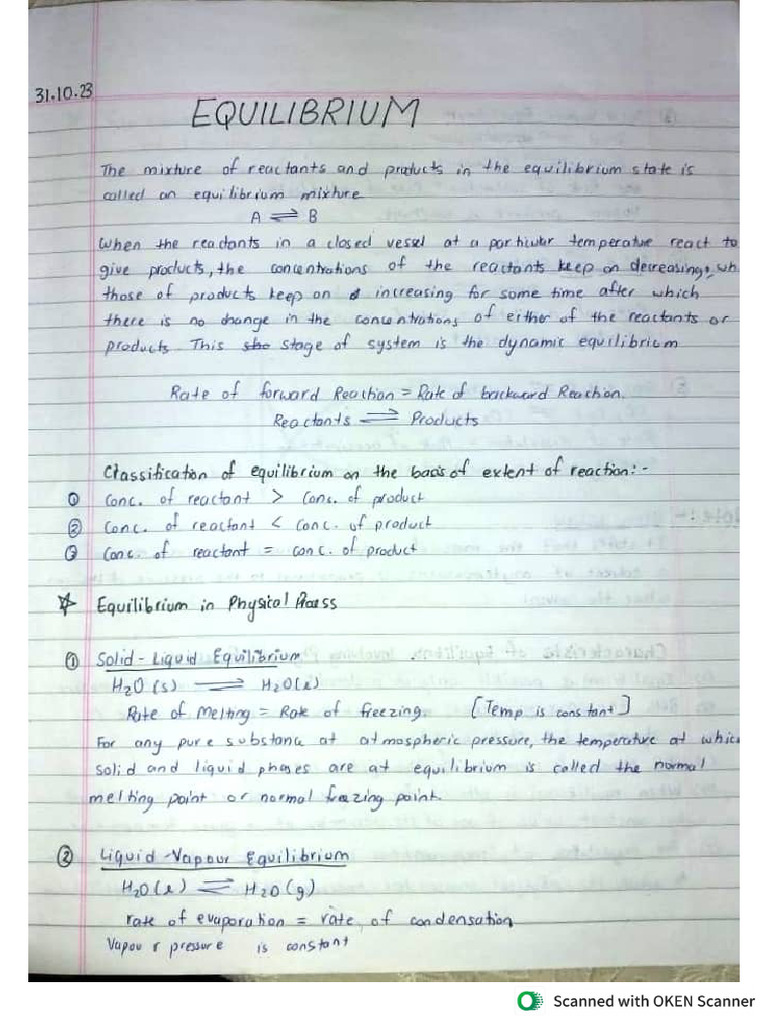 31.10.23
EQUILIBRIUM
The mixture of reactants and products in the equilibrium state is
called an equilibrium mixture
A ⇌ B
When the reactants in a closed vessel at a particular temperature react to
give products, the concentrations of the reactants keep on decreasing, wh
those of products keep on increasing for some time after which
there is no change in the concentrations of either of the reactants or
products. This stage of system is the dynamic equilibrium
Rate of forward Reaction = Rate of backward Reaction.
Reactants ⇌ Products
Classification of equilibrium on the basis of extent of reaction:-
① Conc. of reactant > Conc. of product
② Conc. of reactant < conc. of product
③ Conc. of reactant = conc. of product
☆ Equilibrium in Physical Process
① Solid-Liquid Equilibrium
H₂O (s) ⇌ H₂O(l)
Rate of Melting = Rate of freezing. [Temp is constant]
For any pure substance at atmospheric pressure, the temperature at which
solid and liquid phases are at equilibrium is called the normal
melting point or normal freezing point.
② Liquid-Vapour Equilibrium
H₂O(l) ⇌ H₂O(g)
rate of evaporation = rate of condensation
Vapour pressure is constant
Scanned with OKEN Scanner